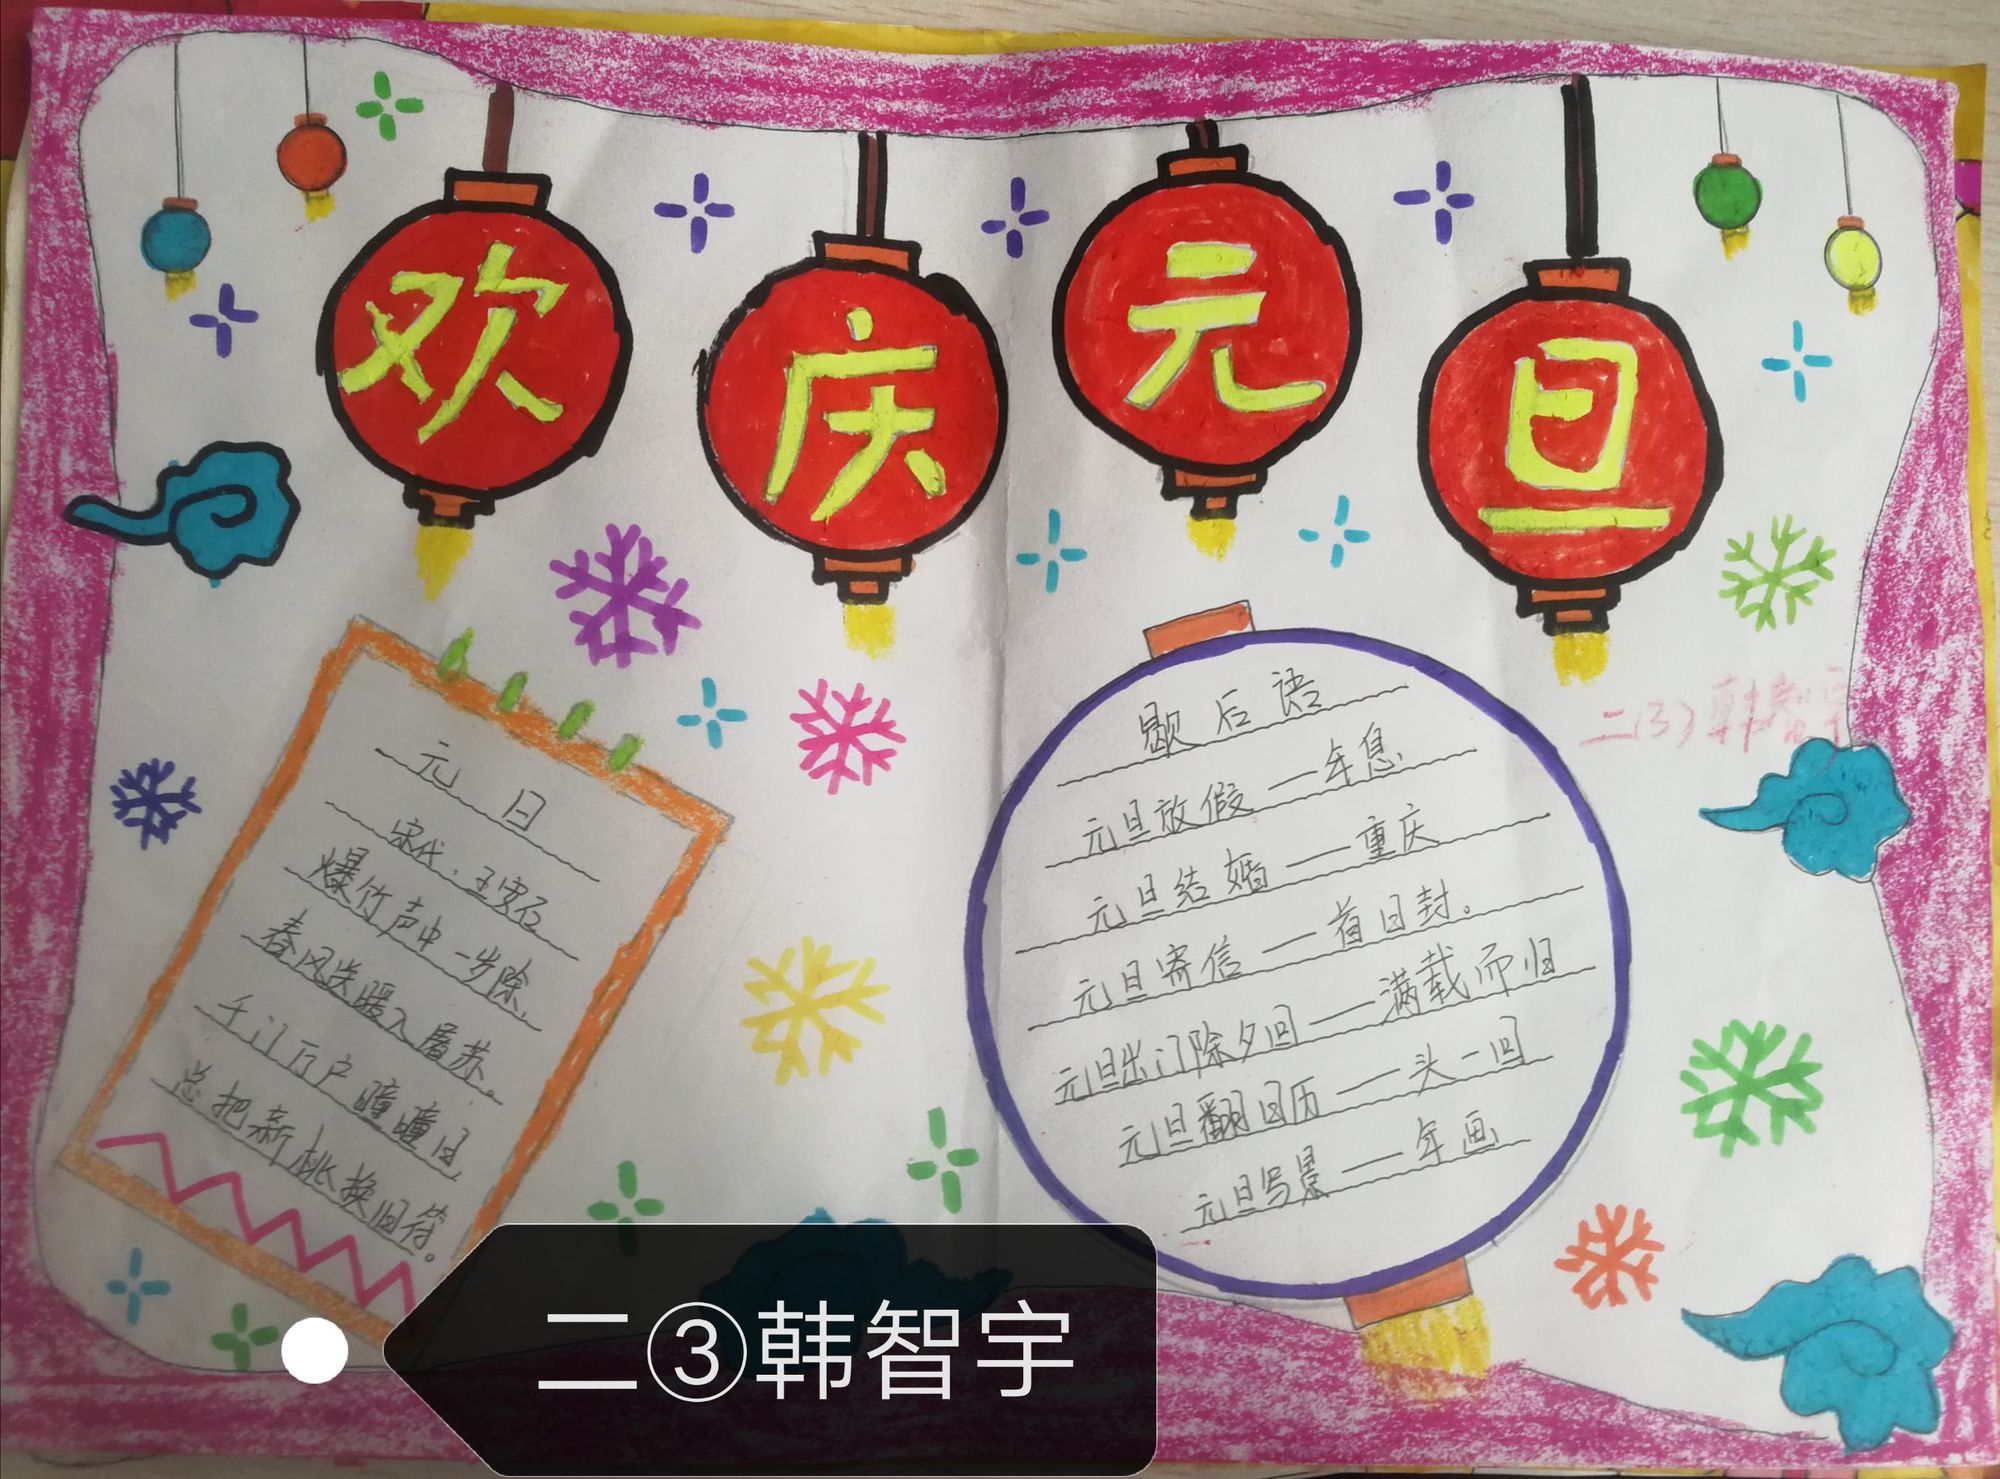 欢庆元旦
二(3)韩智宇
元日
宋代.王安石
爆竹声中一岁除,
春风送暖入屠苏。
千门万户曈曈日,
总把新桃换旧符。
歇后语
元旦放假——年息
元旦结婚——重庆
元旦寄信——首日封。
元旦出门除夕回——满载而归
元旦翻日历——头一回
元旦写景——年画
二③韩智宇